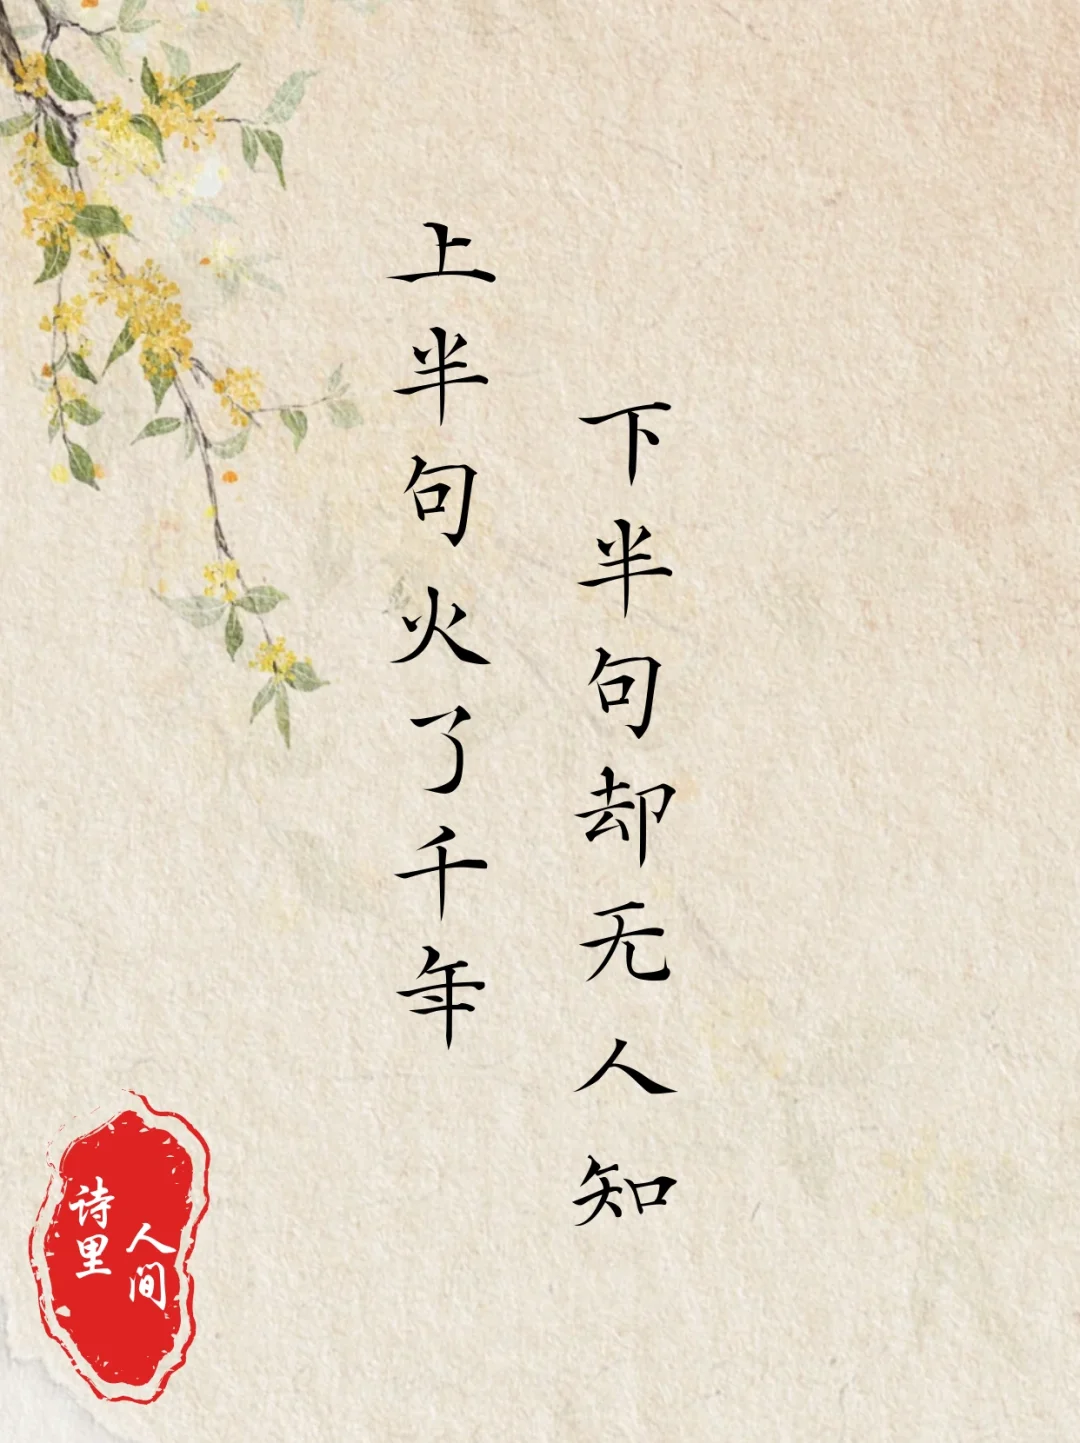 上半句火了千年
下半句却无人知
诗里
人间